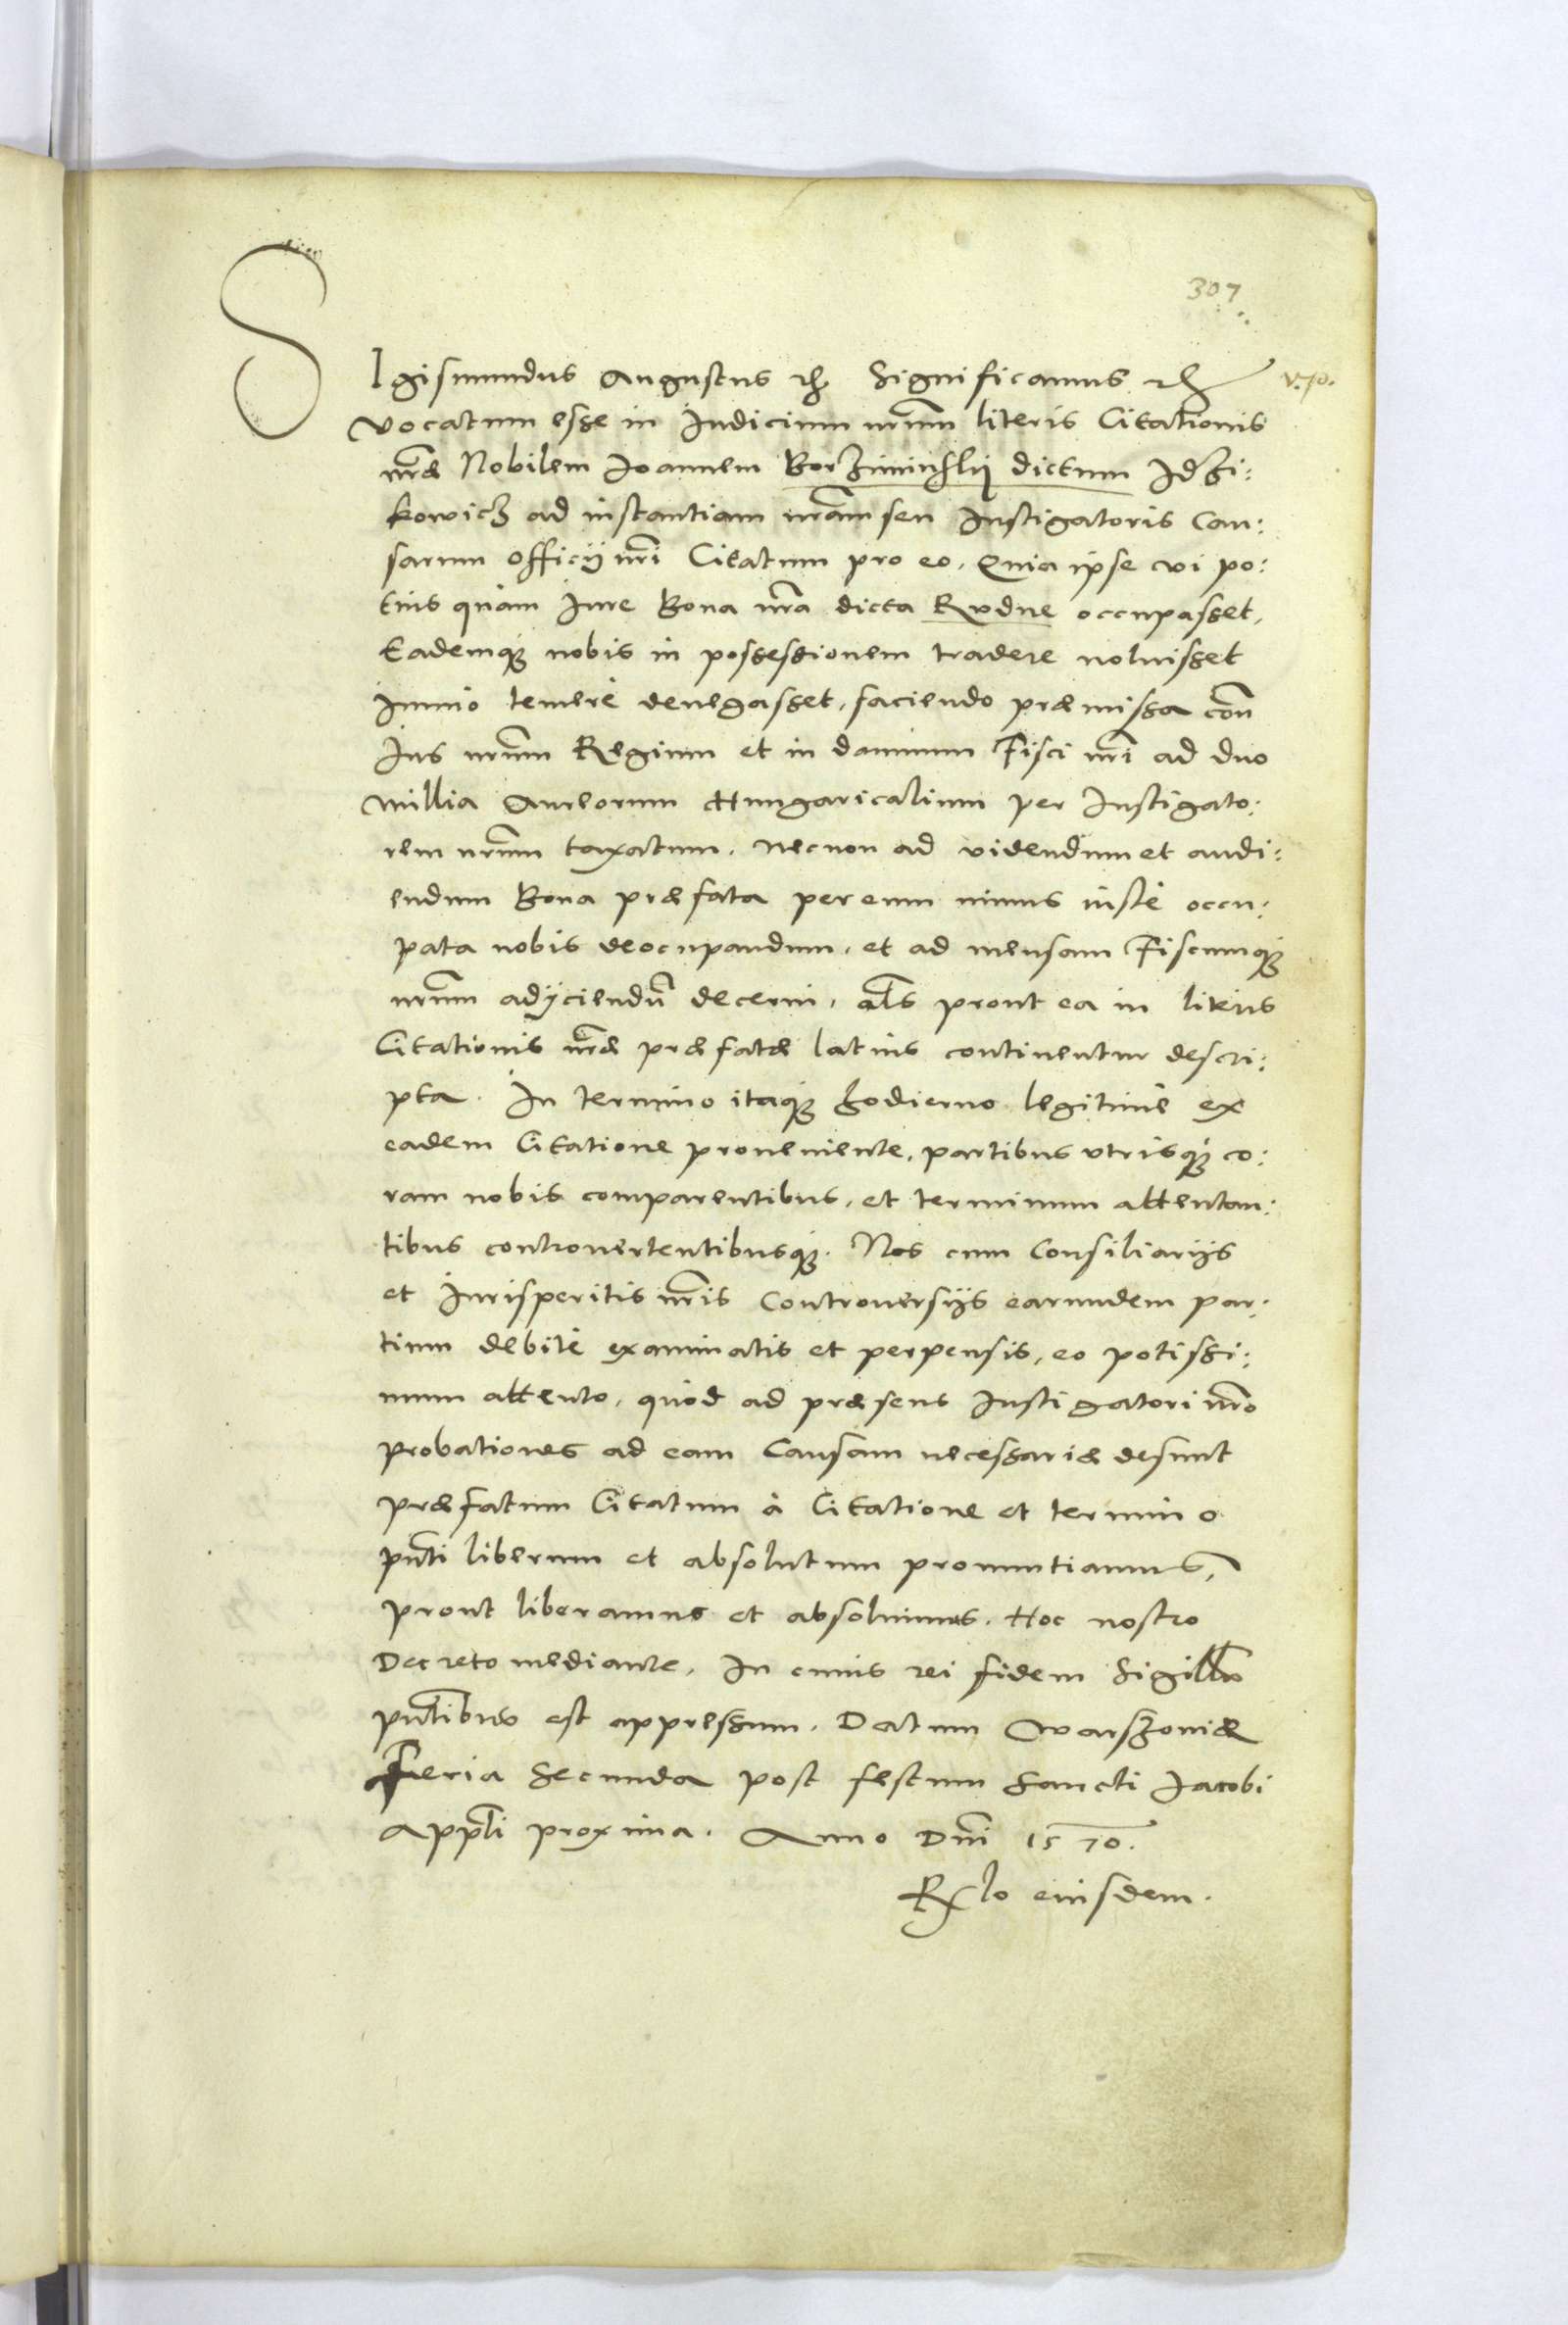 307
SIgismundus Augustus rc. Significamus rc.
vocatum esse in Iudicium nrum literis Citationis
nrae Nobilem Ioannem dictum Idzi:
kowicz ad instantiam nram seu Instigatoris Cau:
sarum officij nri Citatum pro eo. Quia ipse vi po:
tius quàm Iure Bona nra dicta Rudne occupasset,
Eademq nobis in possessionem tradere noluisset
immo temerè denegasset, faciendo praemissa con
Ius nrum Regium et in damnum Fisci nri ad duo
millia Aureorum Hungaricalium per Instigato:
rem nrum taxatum. necnon ad videndum et audi:
endum Bona praefata per eum minus iustè occu:
pata nobis deocupandum, et ad mensam Fiscumq
nrum adijciendu decerni. als prout ea in literis
Citationis nrae praefatae latius continentur descri:
pta. In termino itaq hodierno legitimè ex
eadem Citatione proueniente, partibus vtrisq co:
ram nobis comparentibus, et terminum attentan:
tibus controuertentibusq. Nos cum Consiliarijs
et Iurisperitis nris Controuersijs earundem par:
tium debitè examinatis et perpensis, eo potissi:
mum attento, quòd ad praesens Instigatori nro
probationes ad eam Causam necessariae desunt
praefatum Citatum à Citatione et termino
pnti liberum et absolutum pronuntiamus,
prout liberamus et absoluimus. Hoc nostro
Decreto mediante. In cuius rei fidem Sigillu
pntibus est appressum. Datum Warszouiae
Feria Secunda post festum Sancti Iacobi
Appli proxima. Anno Dni 1570.
Rlo eiusdem.